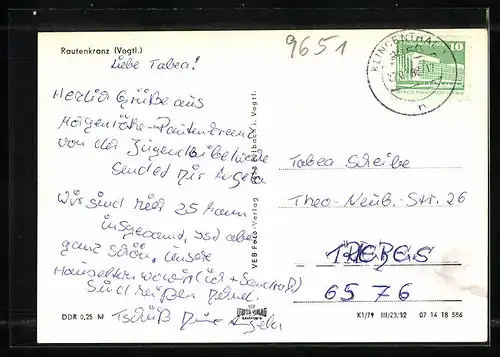 Rautenkranz (Vogtl.)
9651
Liebe Tabea!
Herzliche Grüße aus
Morgenröthe-Rautenkranz
von der Jugendbibelwoche
sendet Dir Angela
Wir sind hier 25 Mann
insgesamt, ist aber
ganz schön, unsere
Hauseltern
sind
Tschüß Deine Angela
DDR 0,25 M
VEB Foto-Verlag
KLINGENTHAL
10
Tabea Scheibe
Theo-Neub.-Str. 26
TREBES
6576
K1/79 III/23/12 07 14 18 586